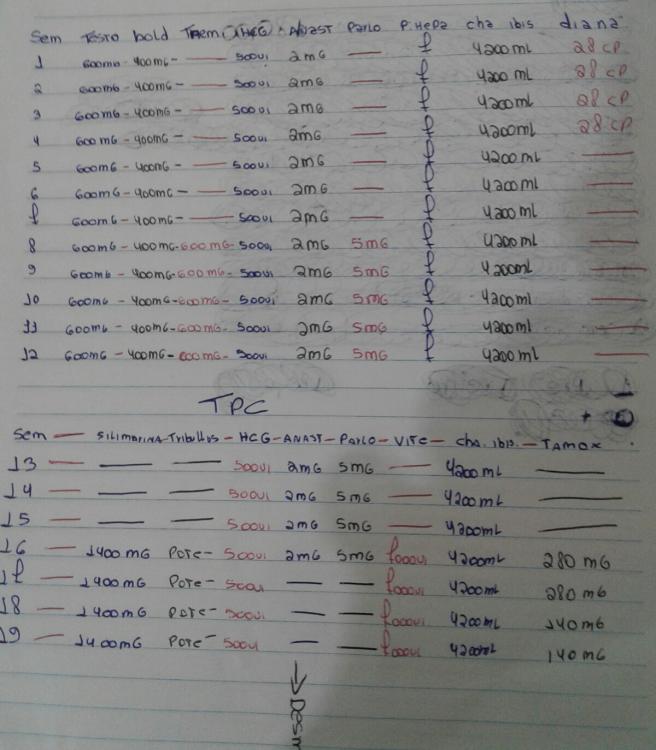 Sem Testo bold Trem HCG ANAST Parlo P.Hepa cha ibis diana
1 600mG - 400mG - — 500ui 2mG — f 4200mL 28 CP
2 600mG - 400mG - — 500ui 2mG — f 4200mL 28 CP
3 600mG - 400mG - — 500ui 2mG — f 4200mL 28 CP
4 600mG - 400mG - — 500ui 2mG — f 4200mL 28 CP
5 600mG - 400mG - — 500ui 2mG — f 4200mL —
6 600mG - 400mG - — 500ui 2mG — f 4200mL —
f 600mG - 400mG - — 500ui 2mG — f 4200mL —
8 600mG - 400mG - 600mG - 500ui 2mG 5mG f 4200mL —
9 600mG - 400mG - 600mG - 500ui 2mG 5mG f 4200mL —
10 600mG - 400mG - 600mG - 500ui 2mG 5mG f 4200mL —
11 600mG - 400mG - 600mG - 500ui 2mG 5mG f 4200mL —
12 600mG - 400mG - 600mG - 500ui 2mG 5mG f 4200mL —
TPC
Sem — Silimarina - Tribullus - HCG - ANAST - Parlo - VitE - cha. ibis. - TAMOX
13 — — — 500ui 2mG 5mG — 4200mL —
14 — — — 500ui 2mG 5mG — 4200mL —
15 — — — 500ui 2mG 5mG — 4200mL —
16 — 1400mG POTE - 500ui 2mG 5mG f000ui 4200mL 280mG
1f — 1400mG POTE - 500ui — — f000ui 4200mL 280mG
18 — 1400mG POTE - 500ui — — f000ui 4200mL 140mG
19 — 1400mG POTE - 500ui — — f000ui 4200mL 140mG